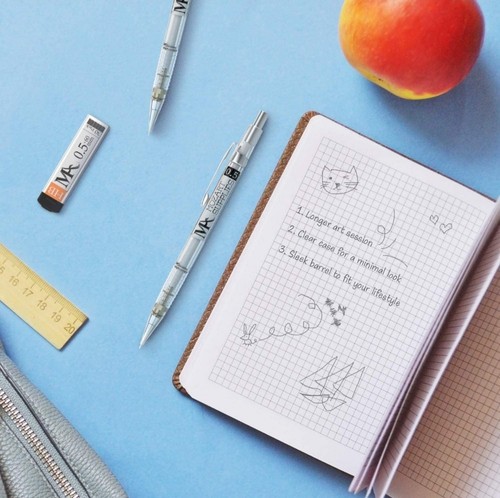 MA
MA 0.5
0.5
MOZART
SUPPLIES
MA
1. Longer art session
2. Clear case for a minimal look
3. Sleek barrel to fit your lifestyle
15 16 17 18 19 20